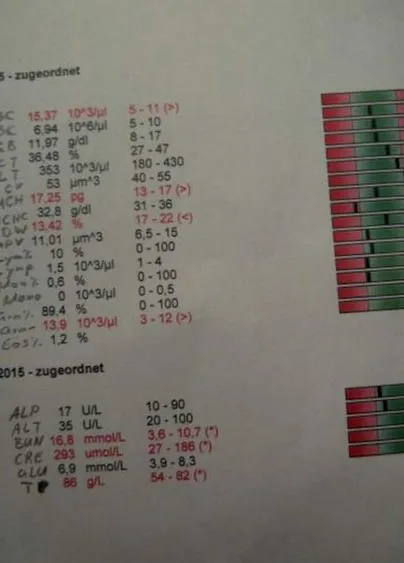 5 - zugeordnet
BC 15,37 10^3/µl 5 - 11 (>)
BC 6,94 10^6/µl 5 - 10
GB 11,97 g/dl 8 - 17
CT 36,48 % 27 - 47
LT 353 10^3/µl 180 - 430
CV 53 µm^3 40 - 55
MCH 17,25 pg 13 - 17 (>)
MCHC 32,8 g/dl 31 - 36
DW 13,42 % 17 - 22 (<)
MPV 11,01 µm^3 6,5 - 15
Lym% 10 % 0 - 100
Lymp 1,5 10^3/µl 1 - 4
Mon% 0,6 % 0 - 100
Mono 0 10^3/µl 0 - 0,5
Gra% 89,4 % 0 - 100
Gran 13,9 10^3/µl 3 - 12 (>)
Eos% 1,2 %
2015 - zugeordnet
ALP 17 U/L 10 - 90
ALT 35 U/L 20 - 100
BUN 16,8 mmol/L 3,6 - 10,7 (*)
CRE 293 umol/L 27 - 186 (*)
GLU 6,9 mmol/L 3,9 - 8,3
TP 86 g/L 54 - 82 (*)